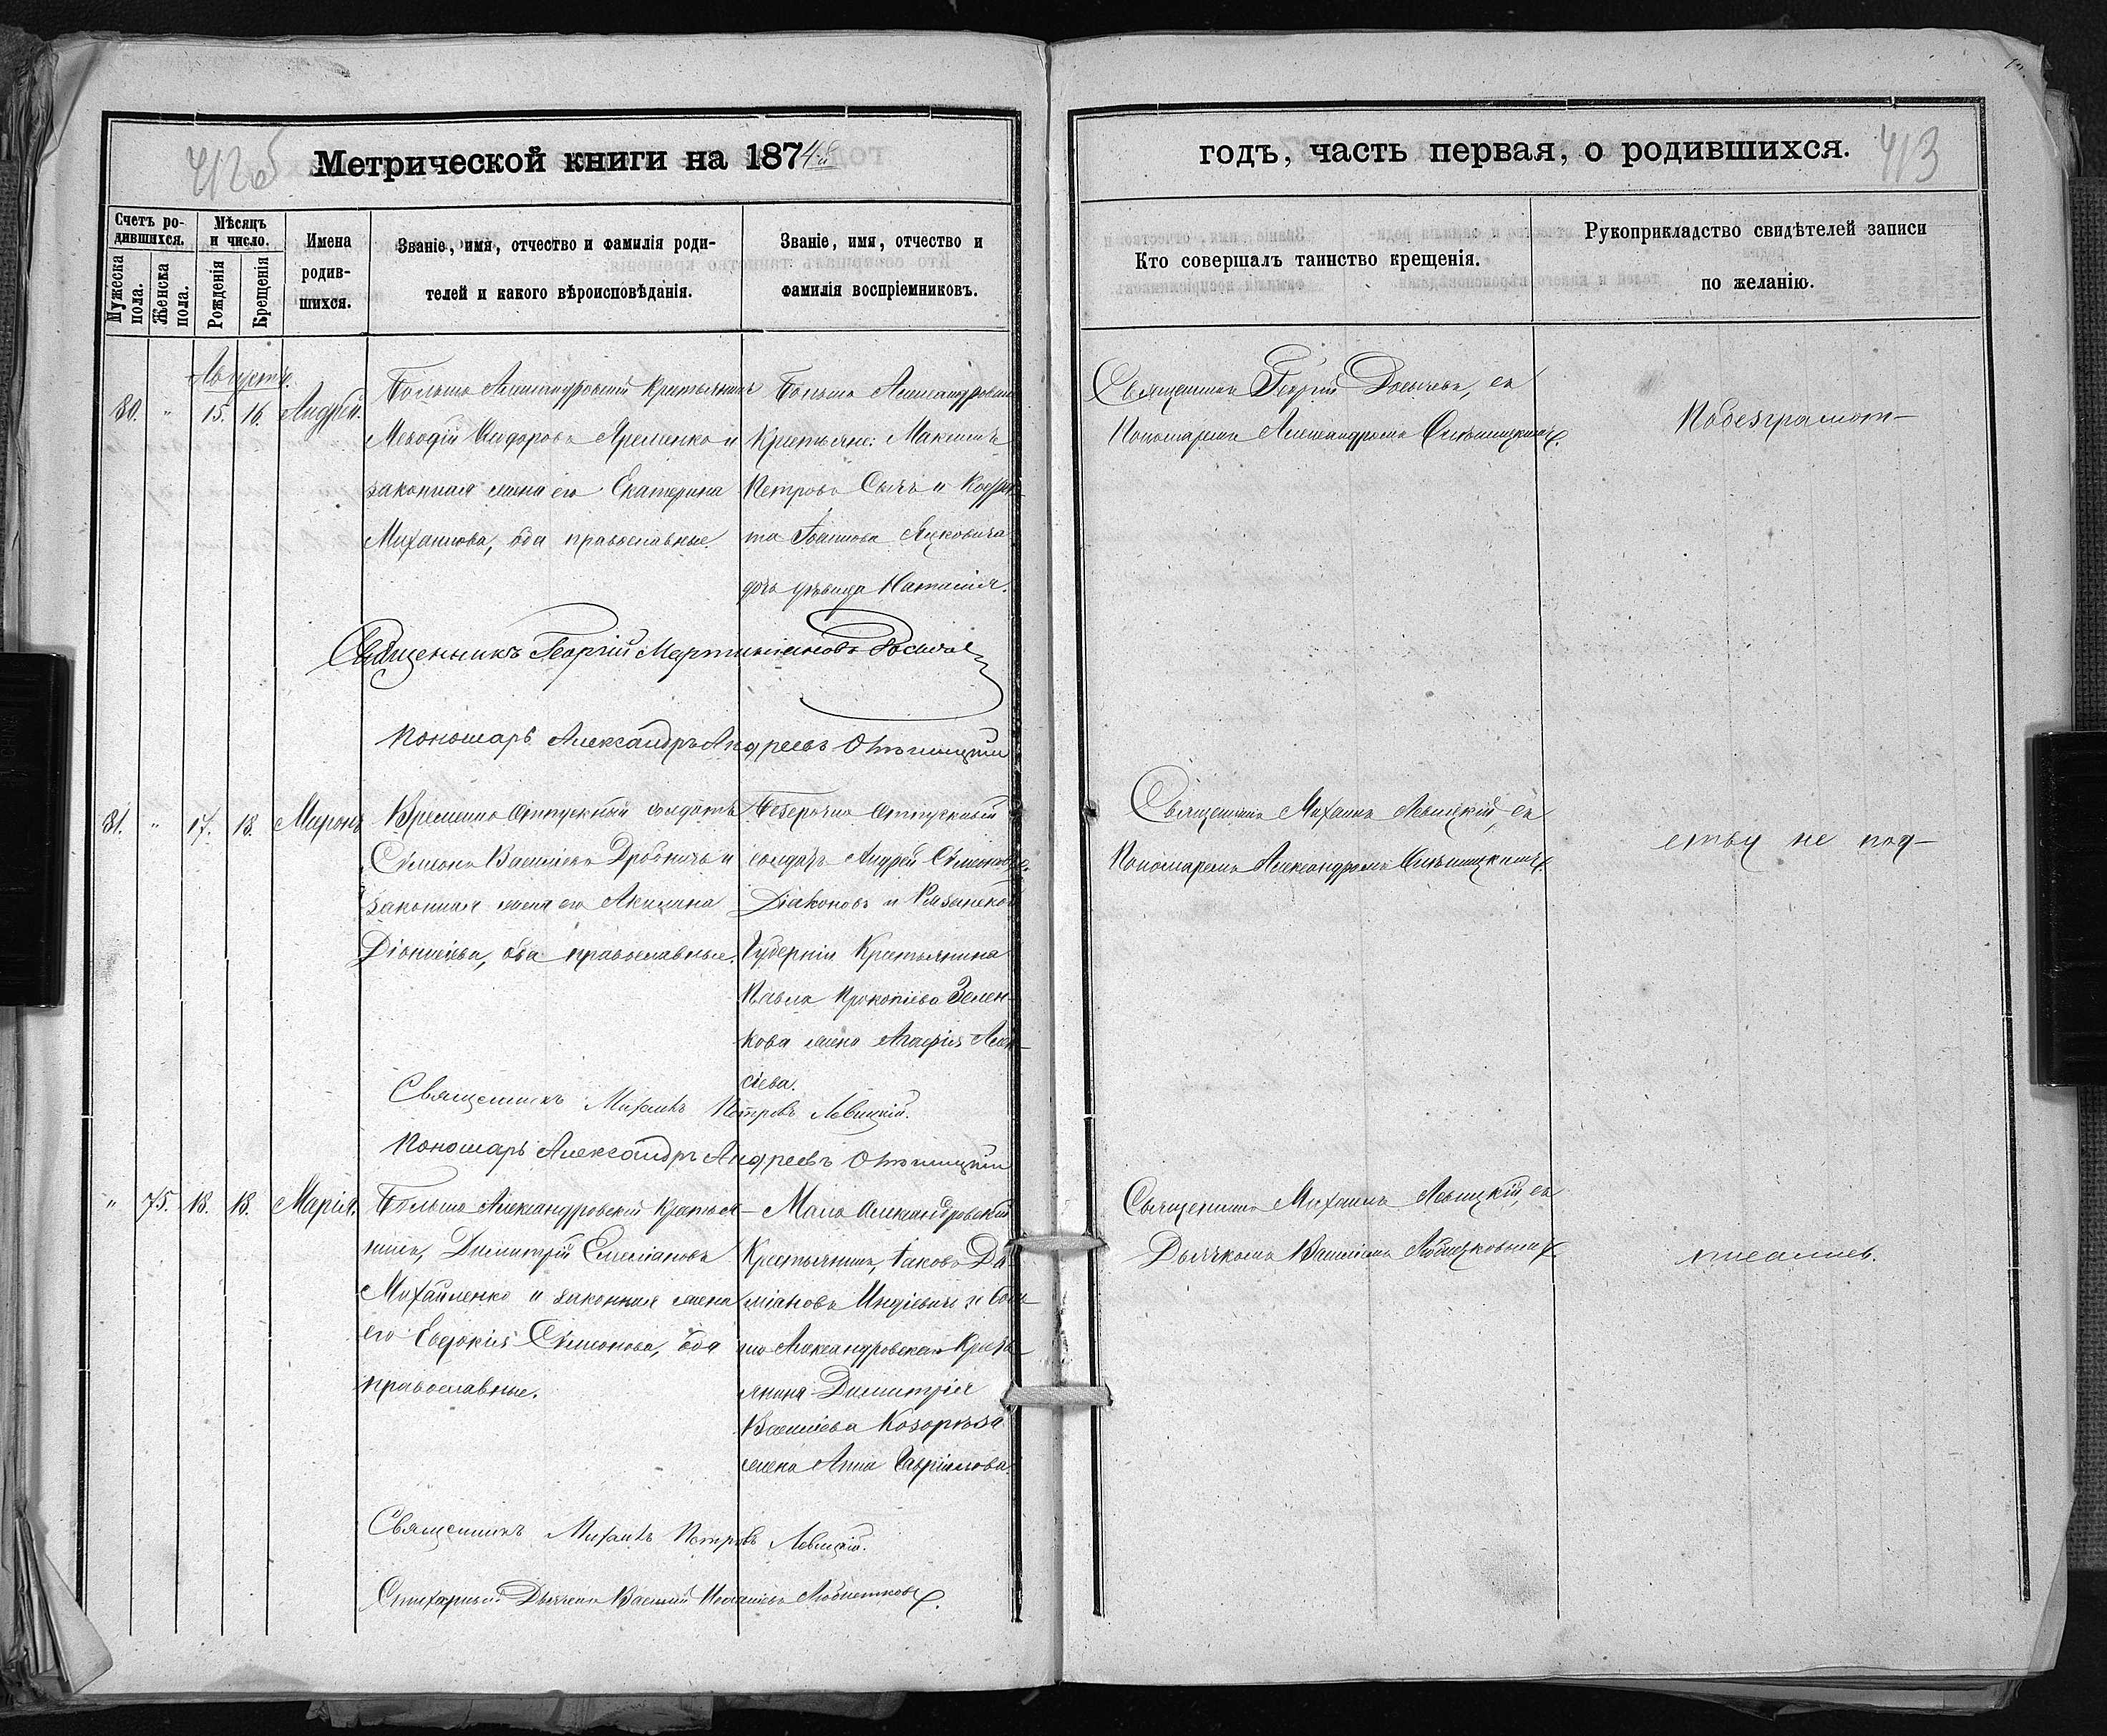 412 об
Метрической книги на 1874й
годъ, часть первая, о родившихся.
413
Счетъ родившихся.
Мѣсяцъ и число.
Имена родившихся.
Званіе, имя, отчество и фамилія родителей и какого вѣроисповѣданія.
Званіе, имя, отчество и фамилія воспріемниковъ.
Мужеска пола.
Женска пола.
Рожденія
Крещенія
Кто совершалъ таинство крещенія.
Рукоприкладство свидѣтелей записи по желанію.
Августъ.
80. " 15. 16. Андрей.
Больше Александровскій крестьянинъ
Меѳодій Сидоровъ Яременко и
законная жена его Екатерина
Михаилова, оба православные.
Больше Александровскіе
Крестьяне: Максимъ
Петровъ Сычъ и
Іоаннова
дочь дѣвица Наталія.
Священникъ Георгій
Пономаремъ Александромъ
По безграмот-
Священникъ Георгій
Пономарь Александръ Андреевъ
81. " 17. 18. Миронъ
Временно Отпускный солдатъ
Сѵмеонъ Василіевъ и
законная жена его Акилина
Діонисіева, оба православные.
Безсрочно Отпускный
солдатъ Андрей Сѵмеоновъ
Діаконовъ и Рязанской
Губерніи Крестьянина
Павла Прокопіева Зелен-
кова жена Агафія Алек-
сіева.
Священникъ Михаилъ Левицкій, съ
Пономаремъ Александромъ
ству не под-
Священникъ Михаилъ Петровъ Левицкій.
Пономарь Александръ Андреевъ
" 75. 18. 18. Марія.
Больше Александровскій Крестья-
нинъ, Димитрій Емеліановъ
Михайленко и законная жена
его Евдокія Сѵмеонова, оба
православные.
Мало Александровскій
Крестьянинъ, Іаковъ Да-
міановъ и Боль-
ше Александровскаго Кресть-
янина Димитрія
Василіева Козорѣза
жена Анна Гавріилова.
Священникъ Михаилъ Левицкій, съ
Дьячкомъ Василіемъ
писались.
Священникъ Михаилъ Петровъ Левицкій.
Стихарный Дьячекъ Василій